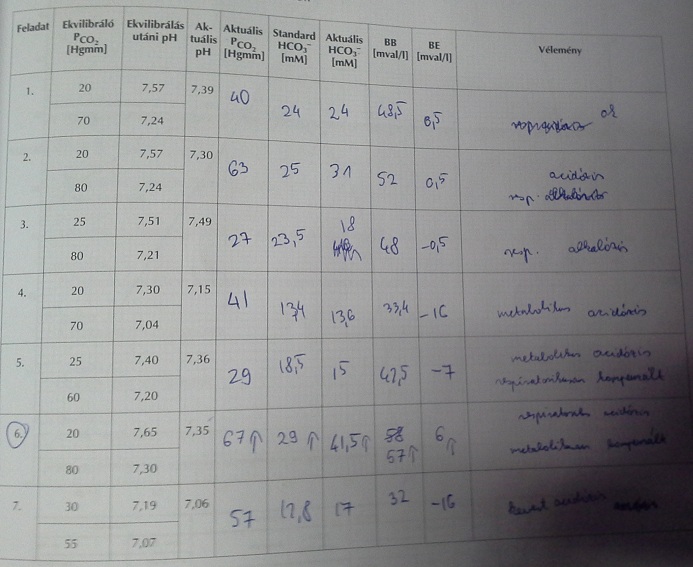 Feladat Ekvilibráló PCO2 [Hgmm] Ekvilibrálás utáni pH Ak-tuális pH Aktuális PCO2 [Hgmm] Standard HCO3− [mM] Aktuális HCO3− [mM] BB [mval/l] BE [mval/l] Vélemény
1. 20 7,57 7,39 40 24 24 48,5 0,5 ok
70 7,24
2. 20 7,57 7,30 63 25 31 52 0,5 acidózis
80 7,24 resp.
3. 25 7,51 7,49 27 23,5 18 48 −0,5 resp. alkalózis
80 7,21
4. 20 7,30 7,15 41 13,6 33,4 −16 metabolikus acidózis
70 7,04
5. 25 7,40 7,36 29 18,5 15 42,5 −7 metabolikus acidózis
60 7,20 respiratorikusan kompenzált
6. 20 7,65 7,35 67↑ 29↑ 41,5↑ 58 57↑ 6↑ respiratorikus acidózis
80 7,30 metabolikusan kompenzált
7. 30 7,19 7,06 57 12,8 17 32 −16 kevert acidózis
55 7,07